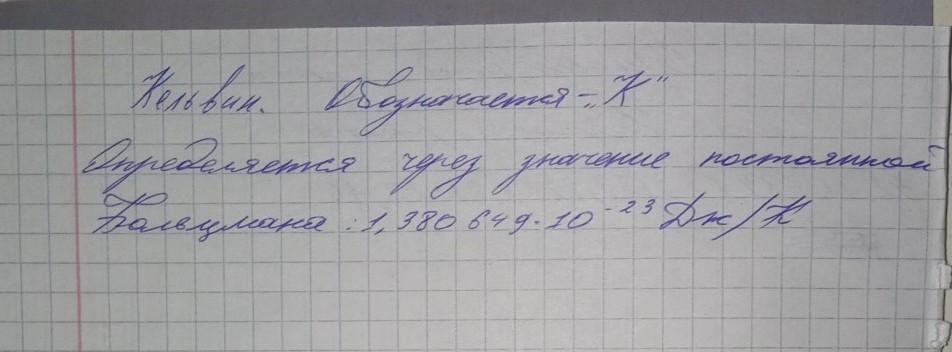 Кельвин. Обозначается - „К"
Определяется через значение постоянной
Больцмана : 1,380 649·10⁻²³ Дж/К